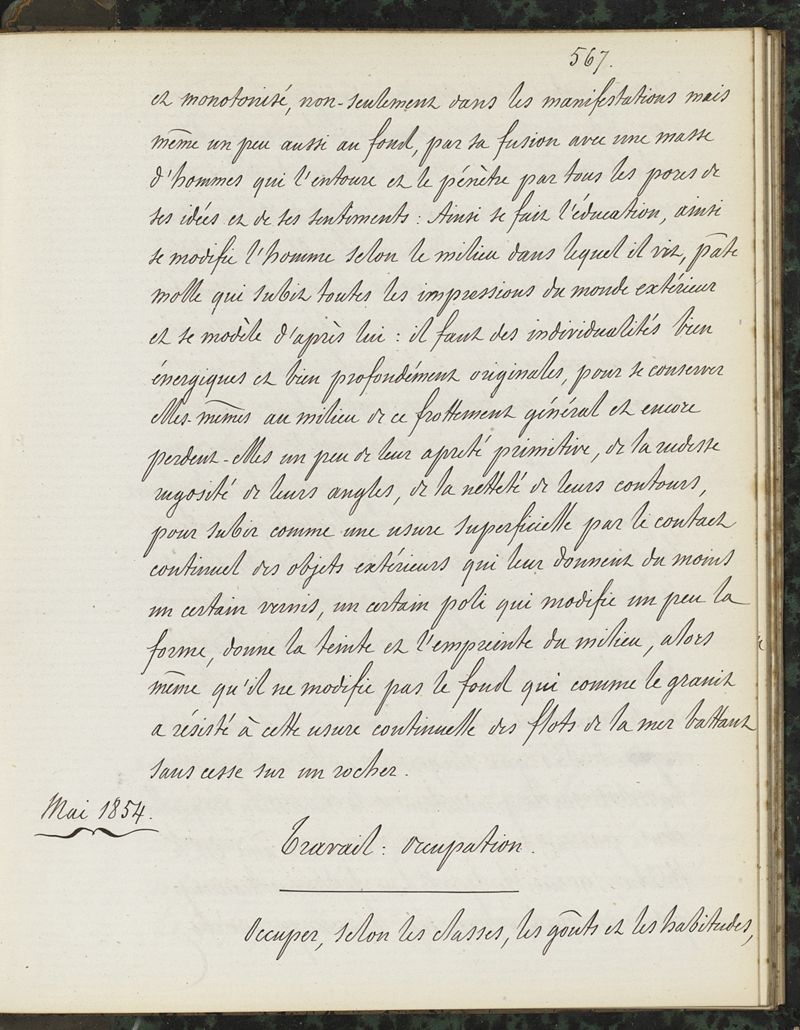 567.
et monotonisé, non-seulement dans les manifestations mais
même un peu aussi au fond, par sa fusion avec une masse
d'hommes qui l'entoure et le pénètre par tous les pores de
ses idées et de ses sentiments : Ainsi se fait l'éducation, ainsi
se modifie l'homme selon le milieu dans lequel il vit, pâte
molle qui subit toutes les impressions du monde extérieur
et se modèle d'après lui : il faut des individualités bien
énergiques et bien profondément originales, pour se conserver
elles-mêmes au milieu de ce frottement général et encore
perdent-elles un peu de leur apreté primitive, de la rudesse
rugosité de leurs angles, de la netteté de leurs contours,
pour subir comme une usure superficielle par le contact
continuel des objets extérieurs qui leur donnent du moins
un certain vernis, un certain poli qui modifie un peu la
forme, donne la teinte et l'empreinte du milieu, alors
même qu'il ne modifie pas le fond qui comme le granit
a résisté à cette usure continuelle des flots de la mer battant
sans cesse sur un rocher.
Mai 1854.
Travail : occupation.
Occuper, selon les classes, les goûts et les habitudes,